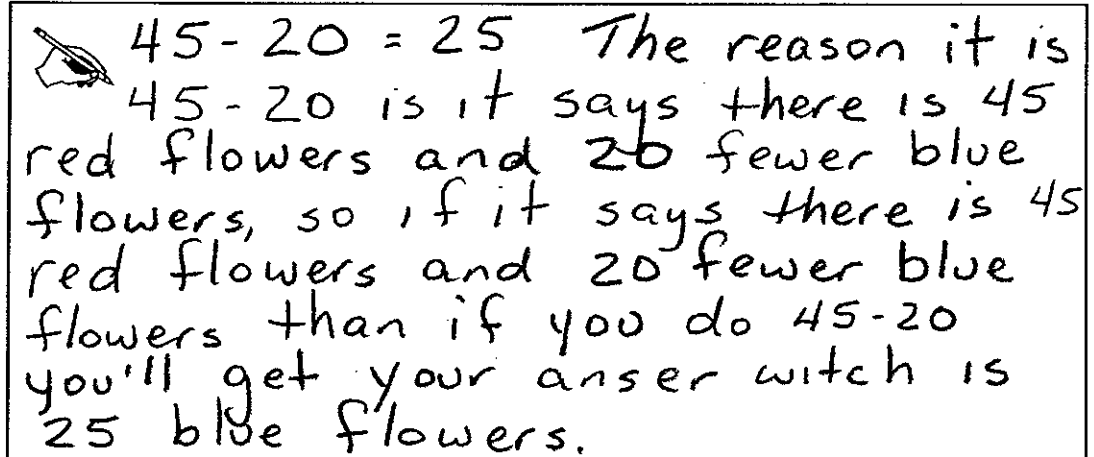 45-20 = 25 The reason it is
45-20 is it says there is 45
red flowers and 20 fewer blue
flowers, so if it says there is 45
red flowers and 20 fewer blue
flowers than if you do 45-20
you'll get your anser witch is
25 blue flowers.